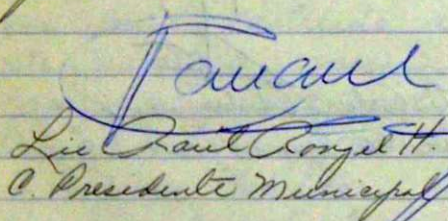 Lic Raul Rangel H.
C. Presidente Municipal